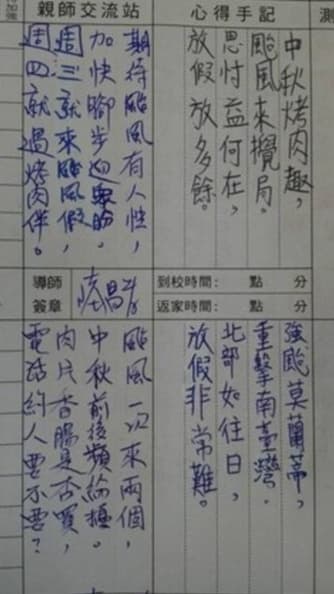 心得手記
中秋烤肉趣，
颱風來攪局。
思忖益何在，
放假放多餘。
親師交流站
期待颱風有人性，
加快腳步迎眾盼。
週三就來颱風假，
週四就過烤肉伴。
到校時間： 點 分
返家時間： 點 分
導師
簽章
強颱莫蘭蒂，
重擊南臺灣。
北部如往日，
放假非常難。
颱風一次來兩個，
中秋前後頻
肉片香腸是否買，
電話約人要不要？